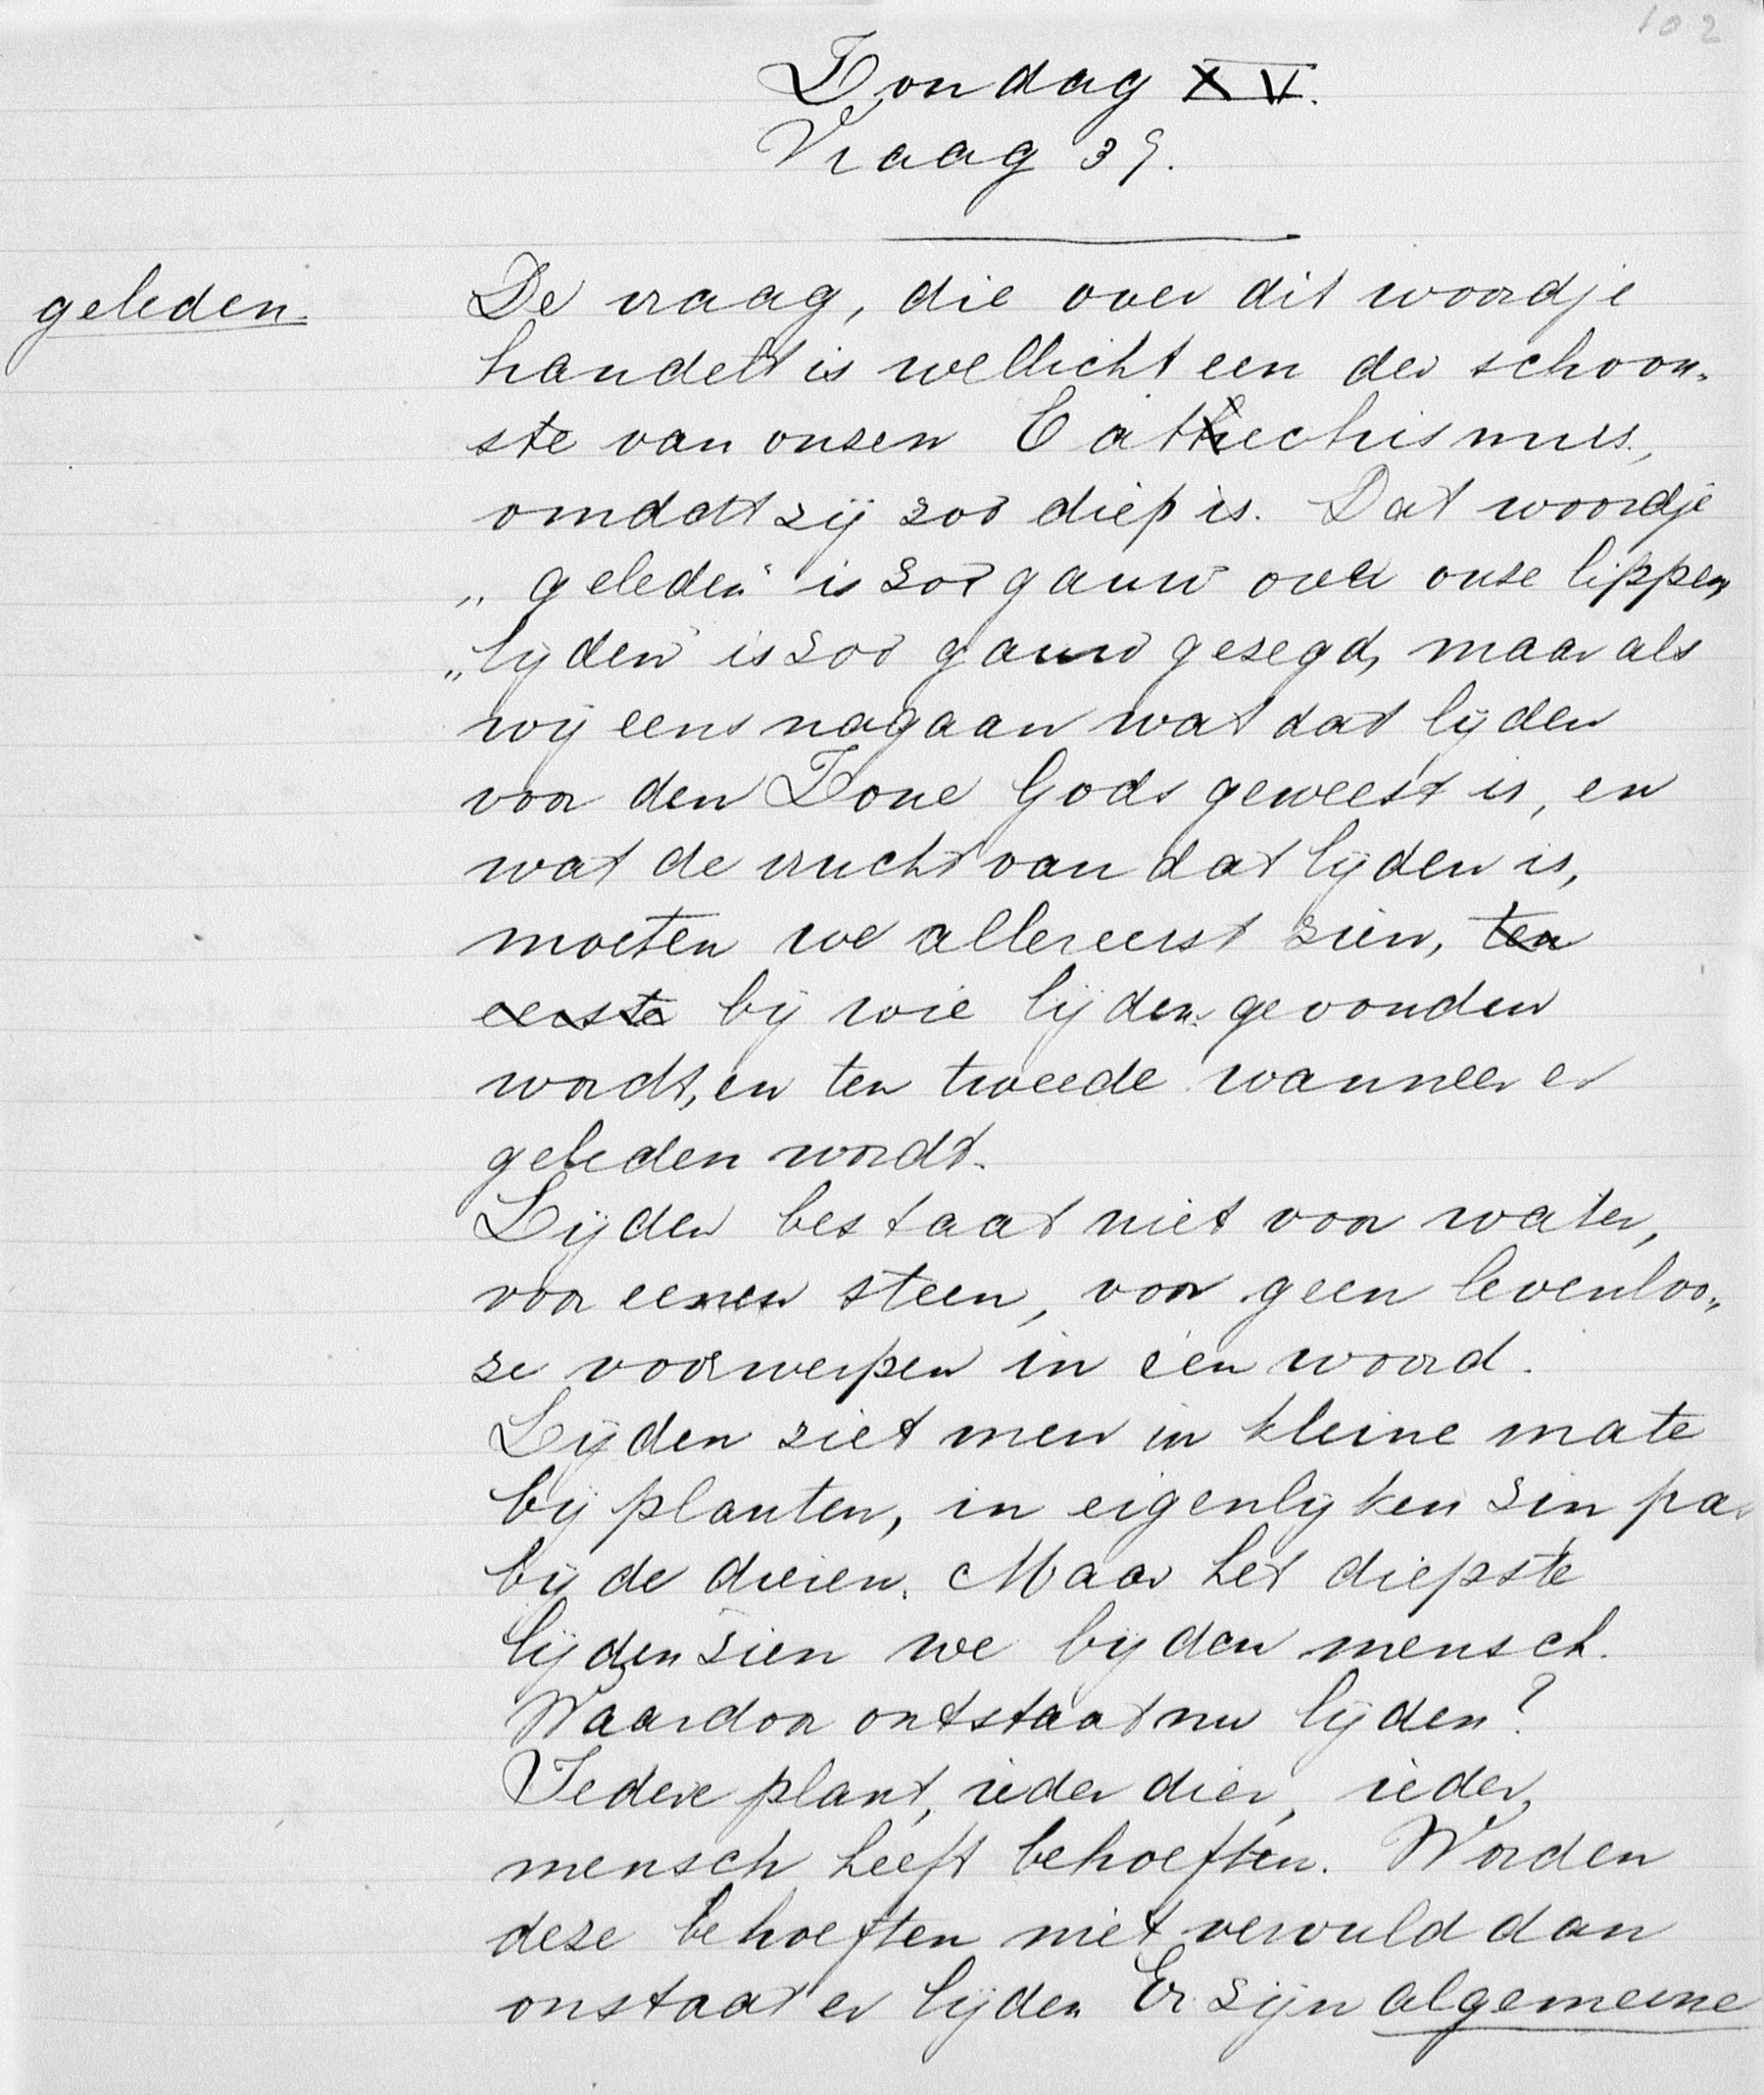 102
Zondag XV.
Vraag 39.
geleden.
De vraag, die over dit woordje
handelt is wellicht een der schoon-
ste van onzen Catechismus,
omdat zij zoo diep is. Dat woordje
„geleden" is zoo gauw over onze lippen,
„lijden" is zoo gauw gezegd, maar als
wij eens nagaan wat dat lijden
voor den Zone Gods geweest is, en
wat de vrucht van dat lijden is,
moeten we allereerst zien, ten
eerste bij wie lijden gevonden
wordt, en ten tweede wanneer er
geleden wordt.
Lijden bestaat niet voor water,
voor eenen steen, voor geen levenloo-
ze voorwerpen in één woord.
Lijden ziet men in kleine mate
bij planten, in eigenlijken zin pas
bij de dieren. Maar het diepste
lijden zien we bij den mensch.
Waardoor ontstaat nu lijden?
Iedere plant, ieder dier, ieder
mensch heeft behoeften. Worden
deze behoeften niet vervuld dan
onstaat er lijden Er zijn algemeene